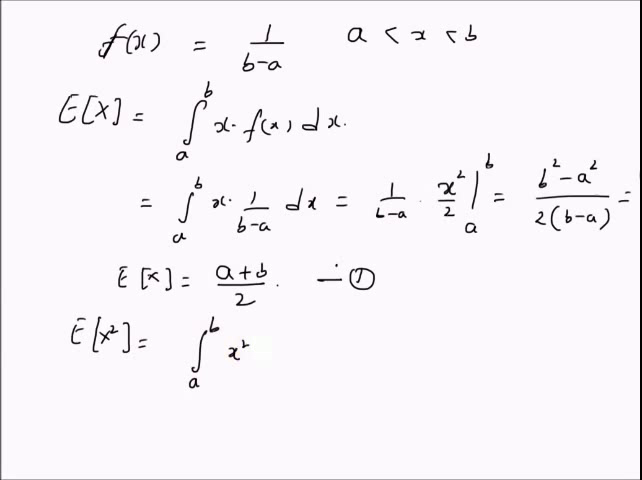 f(x) = 1/(b-a) a < x < b
E[X] = ∫_a^b x. f(x) dx.
= ∫_a^b x. 1/(b-a) dx = 1/(b-a) . x²/2 |_a^b = (b²-a²)/(2(b-a)) =
E[x] = (a+b)/2. — ①
E[X²] = ∫_a^b x²